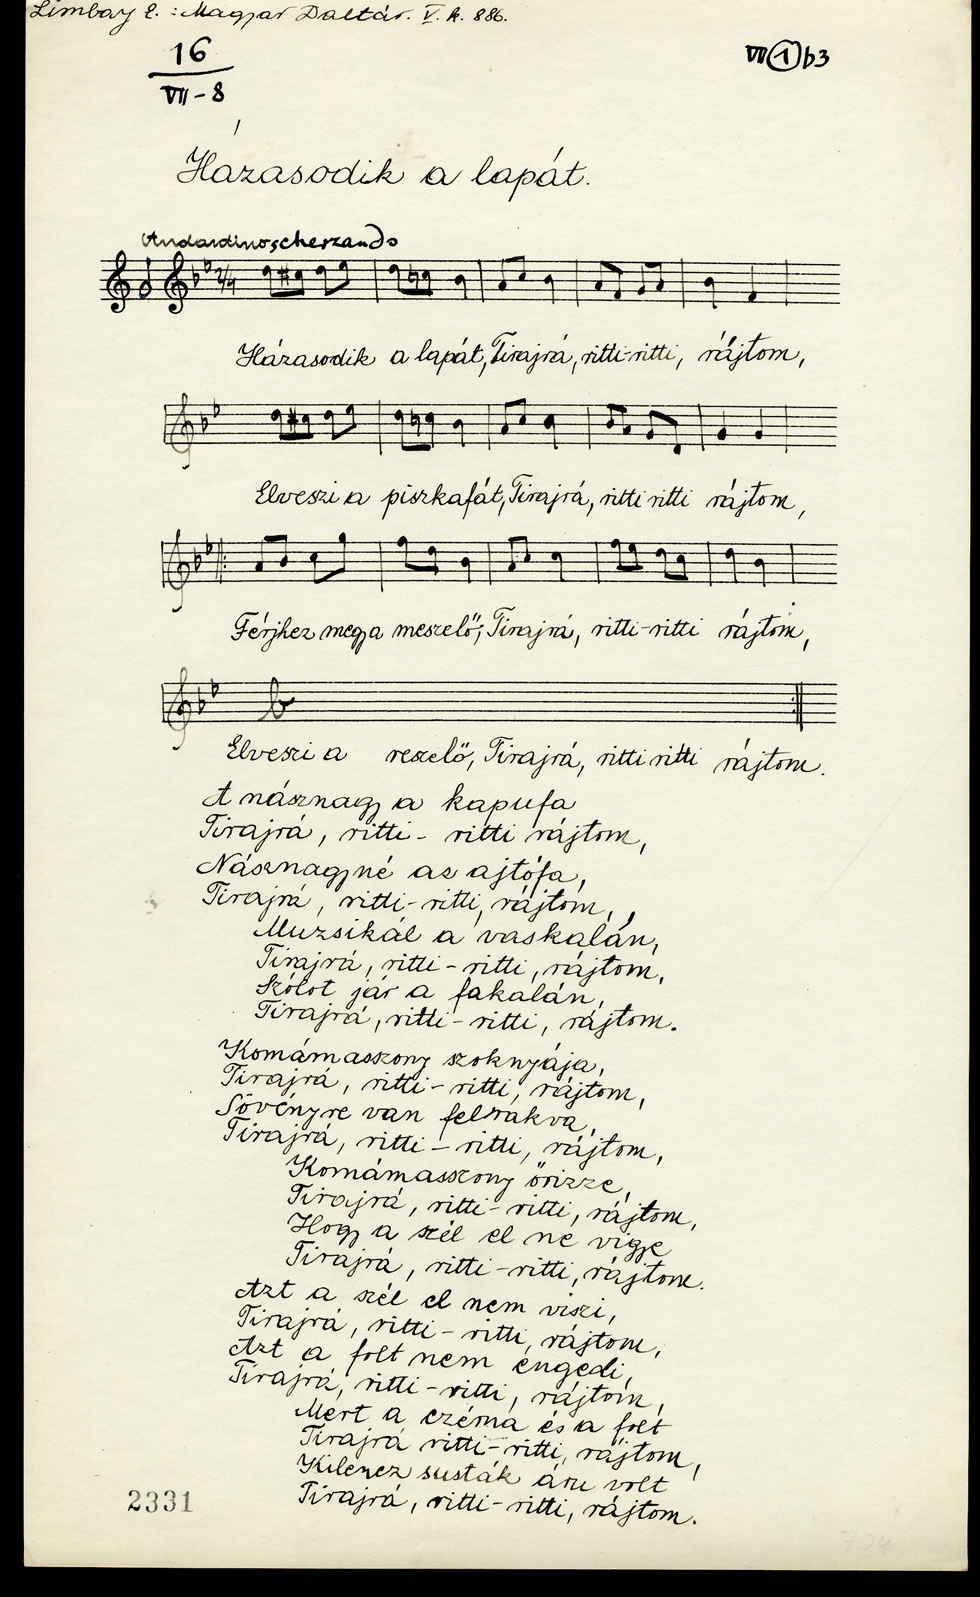 Limbay E.: Magyar Daltár. V. k. 886.
16
VII-8
VII 1 b3
Házasodik a lapát.
Andantino scherzando
2/4
Házasodik a lapát, Tirajrá, ritti-ritti, rájtom,
Elveszi a piszkafát, Tirajrá, ritti ritti rájtom,
Férjhez megy a meszelő; Tirajrá, ritti-ritti rájtom,
Elveszi a reszelő, Tirajrá, ritti ritti rájtom.
A násznagy a kapufa
Tirajrá, ritti- ritti rájtom,
Násznagyné az ajtófa,
Tirajrá, ritti-ritti, rájtom,
Muzsikál a vaskalán,
Tirajrá, ritti-ritti, rájtom,
Szólot jár a fakalán,
Tirajrá, ritti-ritti, rájtom.
Komámasszony szoknyája,
Tirajrá, ritti-ritti, rájtom,
Sövényre van felrakva,
Tirajrá, ritti-ritti, rájtom,
Komámasszony őrizze,
Tirajrá, ritti-ritti, rájtom,
Hogy a szél el ne vigye
Tirajrá, ritti-ritti, rájtom.
Azt a szél el nem viszi,
Tirajrá, ritti-ritti, rájtom,
Azt a folt nem engedi,
Tirajrá, ritti-ritti, rájtom,
Mert a czérna és a folt
Tirajrá ritti-ritti, rájtom,
Kilencz susták áru volt
Tirajrá, ritti-ritti, rájtom.
2331